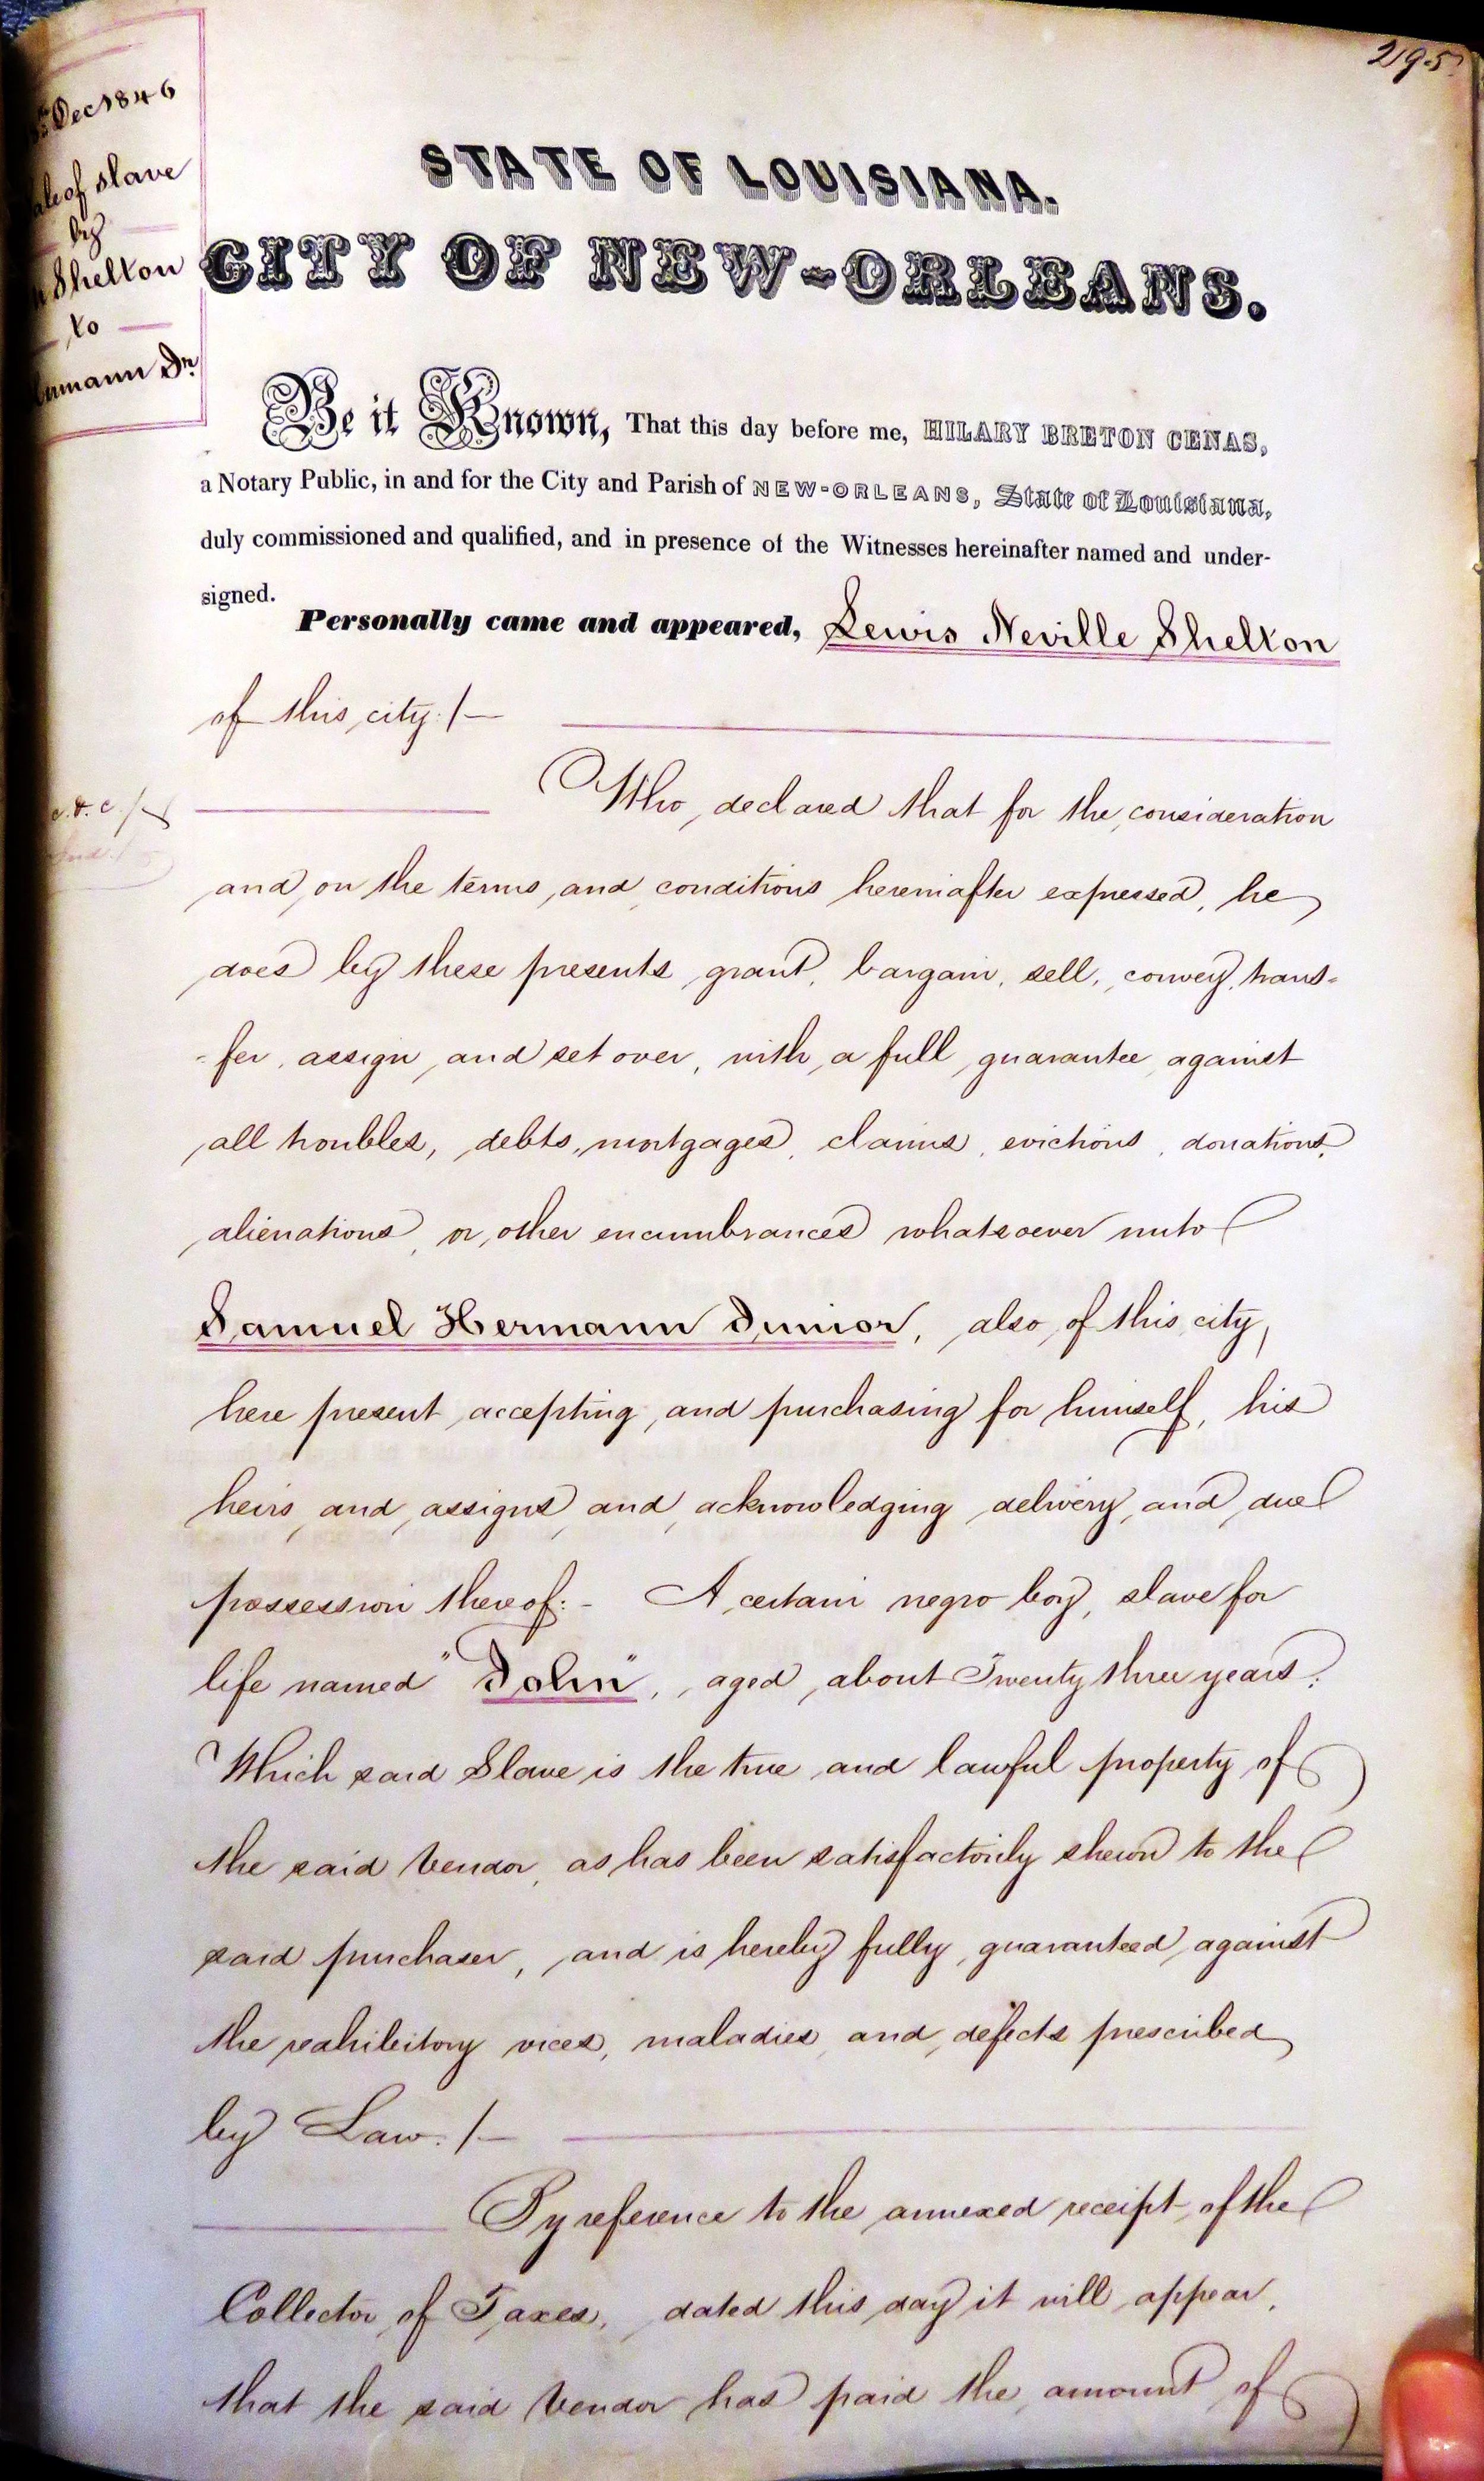 295.
Dec 1846
ale of slave
by
Shelton
to
ermann Jr.
STATE OF LOUISIANA.
CITY OF NEW-ORLEANS.
Be it Known, That this day before me, HILARY BRETON CENAS,
a Notary Public, in and for the City and Parish of NEW-ORLEANS, State of Louisiana,
duly commissioned and qualified, and in presence of the Witnesses hereinafter named and under-
signed.
Personally came and appeared, Lewis Neville Shelton
of this city:/—
Who declared that for the consideration
and on the terms and conditions hereinafter expressed, he
does by these presents grant, bargain, sell, convey, trans-
-fer, assign and set over, with a full guarantee against
all troubles, debts, mortgages, claims, evictions, donations,
alienations, or other encumbrances whatsoever unto
Samuel Hermann Junior, also of this city,
here present accepting, and purchasing for himself, his
heirs and assigns, and acknowledging delivery and due
possession thereof:- A certain negro boy, slave for
life named "John", aged about Twenty three years:
Which said Slave is the true and lawful property of
the said Vendor, as has been satisfactorily shewn to the
said purchaser, and is hereby fully guaranteed against
the redhibitory vices, maladies and defects prescribed
by Law:/—
By reference to the annexed receipt of the
Collector of Taxes, dated this day it will appear,
that the said Vendor has paid the amount of